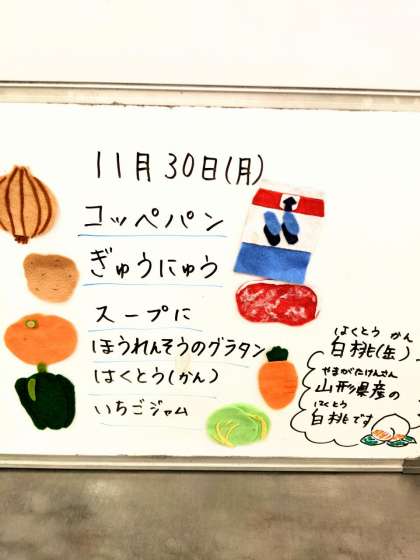 11月30日(月)
コッペパン
ぎゅうにゅう
スープに
ほうれんそうのグラタン
はくとう(かん)
いちごジャム
はくとう かん
白桃(缶)
やまがたけんさん
山形県産の
はくとう
白桃です